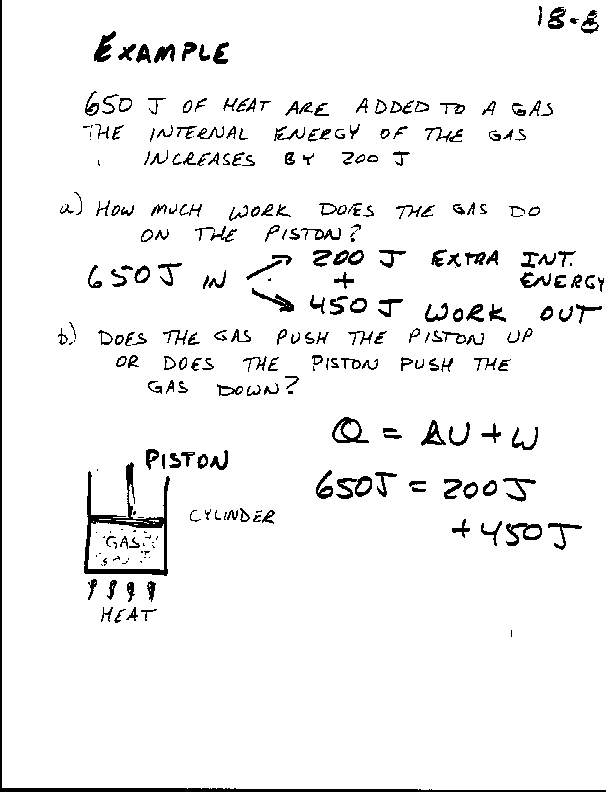 18-8
EXAMPLE
650 J OF HEAT ARE ADDED TO A GAS
THE INTERNAL ENERGY OF THE GAS
INCREASES BY 200 J
a) HOW MUCH WORK DOES THE GAS DO
ON THE PISTON?
650J IN
200 J EXTRA INT.
ENERGY
+
450 J WORK OUT
b) DOES THE GAS PUSH THE PISTON UP
OR DOES THE PISTON PUSH THE
GAS DOWN?
Q = ΔU + W
650J = 200J
+ 450J
PISTON
CYLINDER
GAS
HEAT